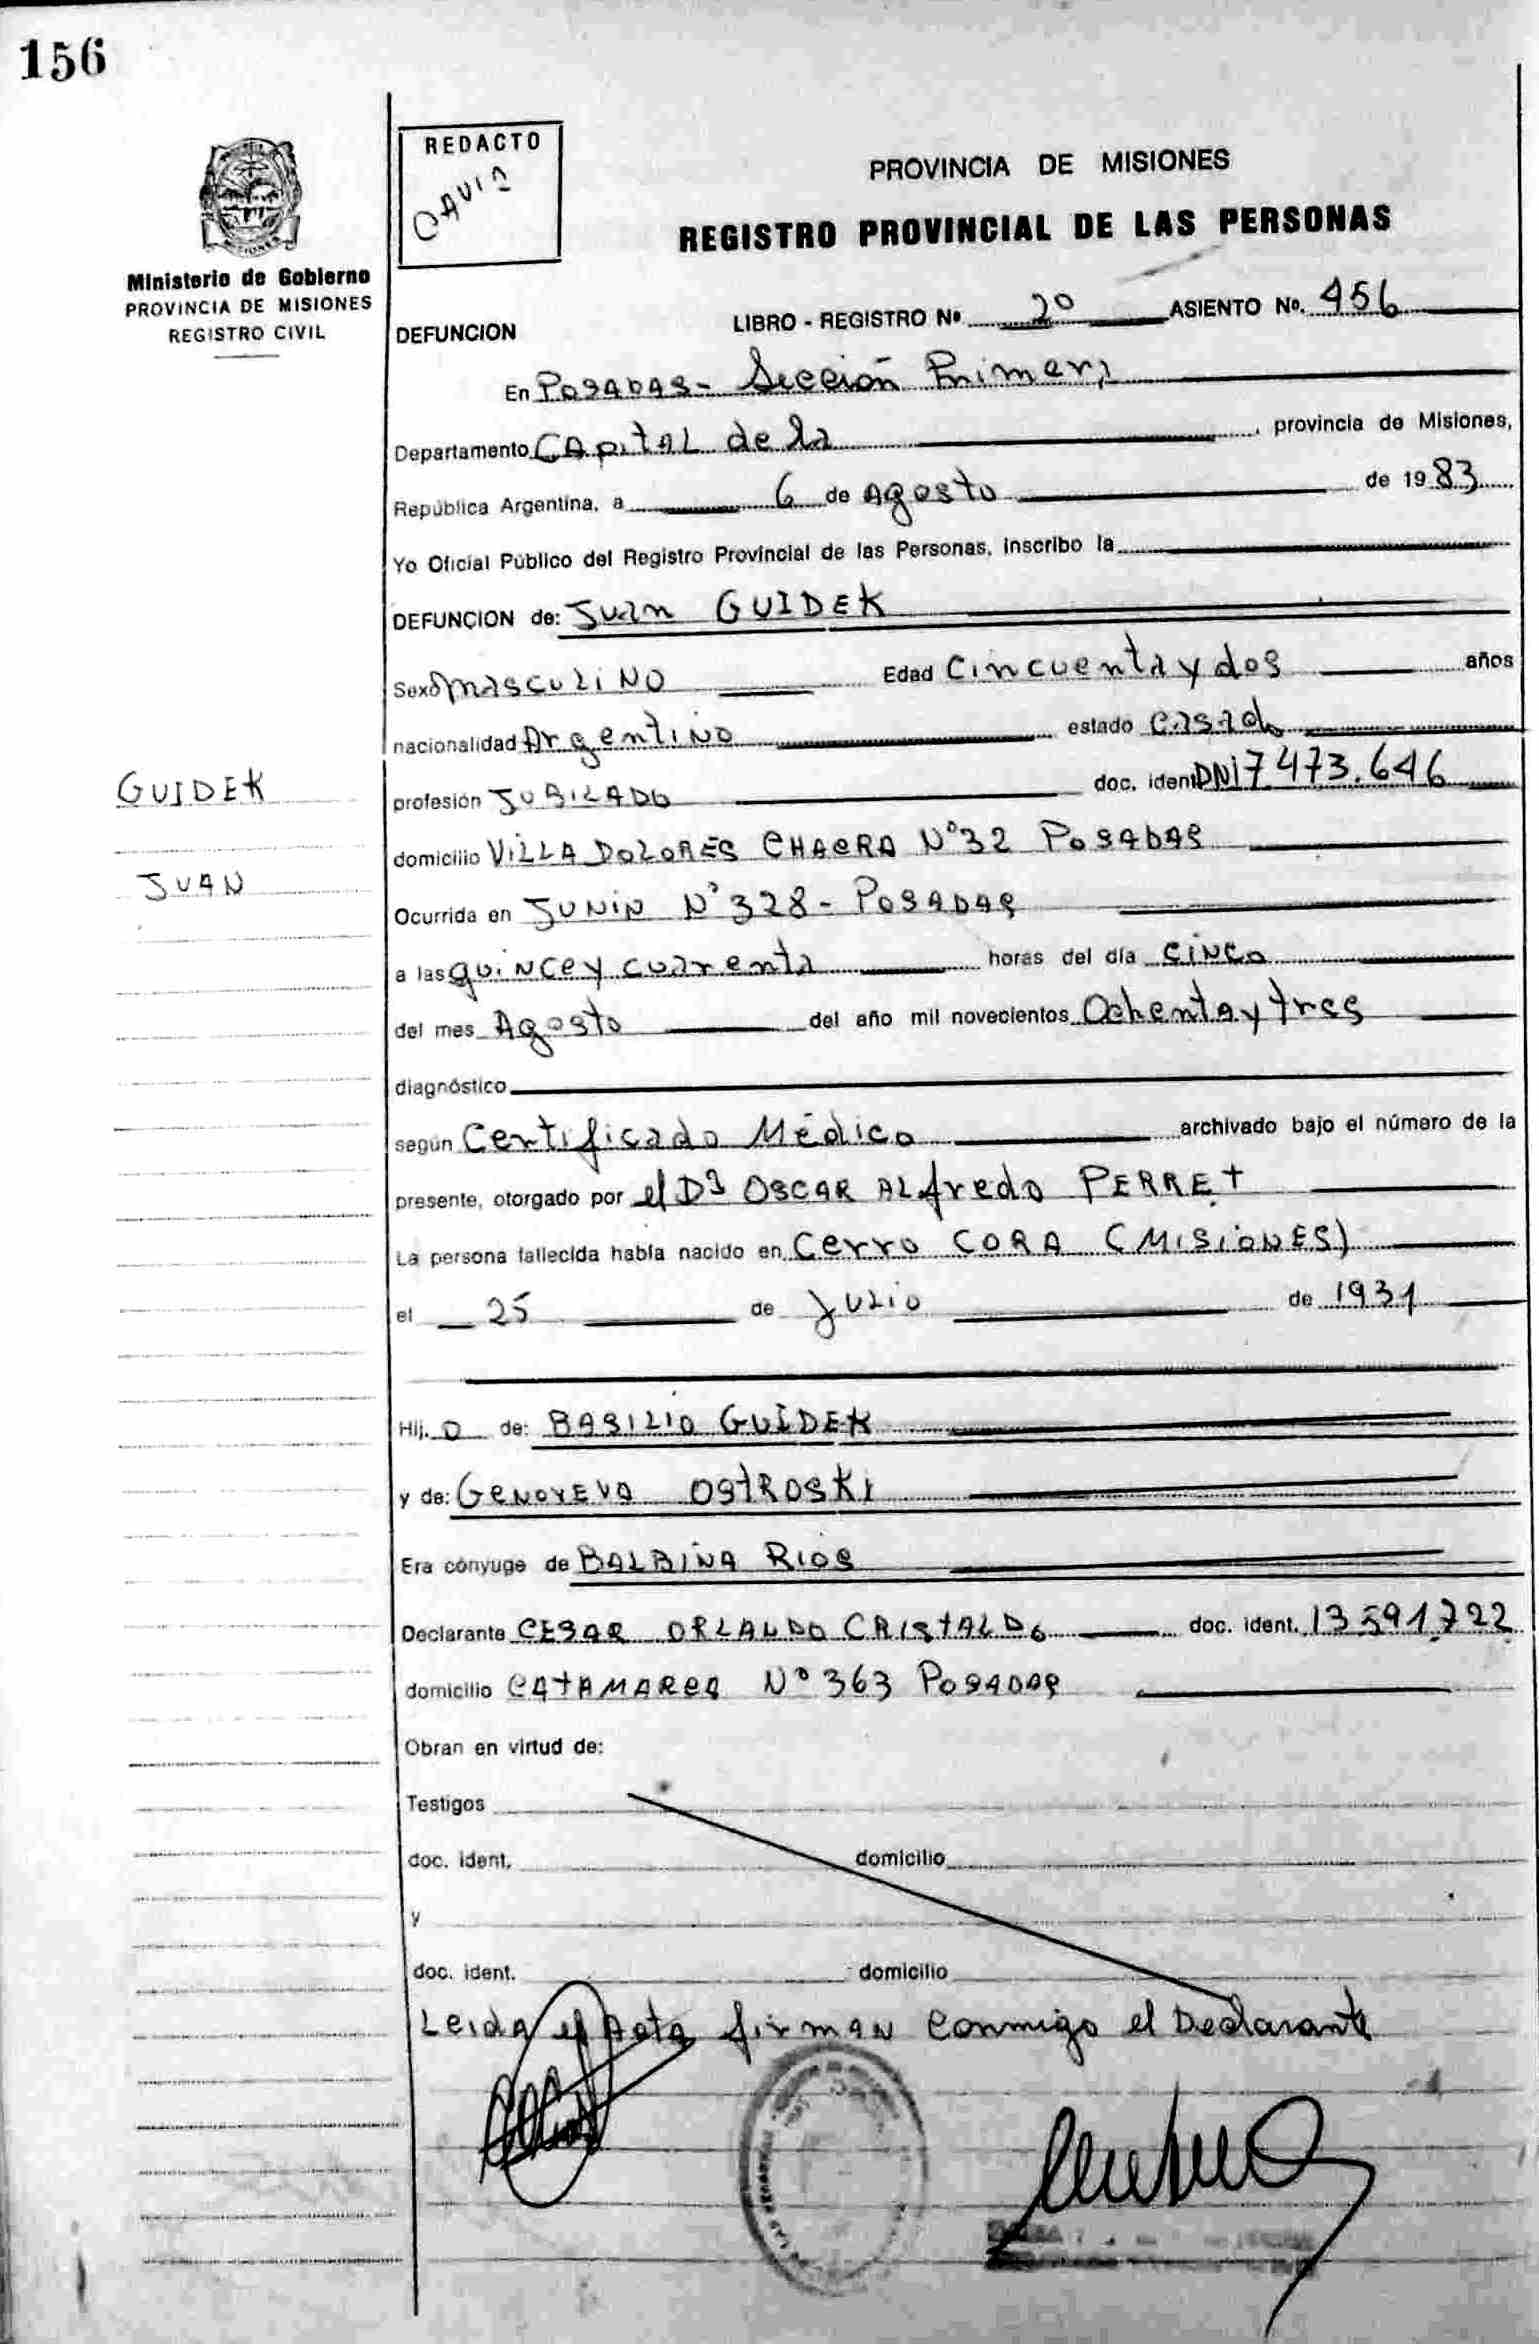 156
REDACTO
DAVIA
PROVINCIA DE MISIONES
REGISTRO PROVINCIAL DE LAS PERSONAS
Ministerio de Gobierno
PROVINCIA DE MISIONES
REGISTRO CIVIL
DEFUNCION LIBRO - REGISTRO Nº 2º ASIENTO Nº. 456
En POSADAS - Sección Primera
Departamento CAPITAL de la, provincia de Misiones,
República Argentina, a 6 de Agosto de 1983
Yo Oficial Público del Registro Provincial de las Personas, inscribo la
DEFUNCION de: Juan GUIDEK
Sexo MASCULINO Edad Cincuenta y dos años
nacionalidad Argentino estado casado
GUIDEK
profesión JUBILADO doc. ident. DNI 7473.646
domicilio VILLA DOLORES CHACRA Nº 32 POSADAS
JUAN
Ocurrida en JUNIN Nº 328 - POSADAS
a las quince y cuarenta horas del día CINCO
del mes Agosto del año mil novecientos Ochenta y tres
diagnóstico
según Certificado Médico archivado bajo el número de la
presente, otorgado por el Dr OSCAR ALfredo PERRET
La persona fallecida había nacido en Cerro CORA (MISIONES)
el 25 de Julio de 1931
Hij. O de: BASILIO GUIDEK
y de: GENOVEVA OSTROSKI
Era cónyuge de BALBINA RIOS
Declarante CESAR ORLANDO CRISTALDO doc. ident. 13.591.722
domicilio CATAMARCA Nº 363 POSADAS
Obran en virtud de:
Testigos
doc. ident. domicilio
y
doc. ident. domicilio
Leida el Acta firman conmigo el Declarante